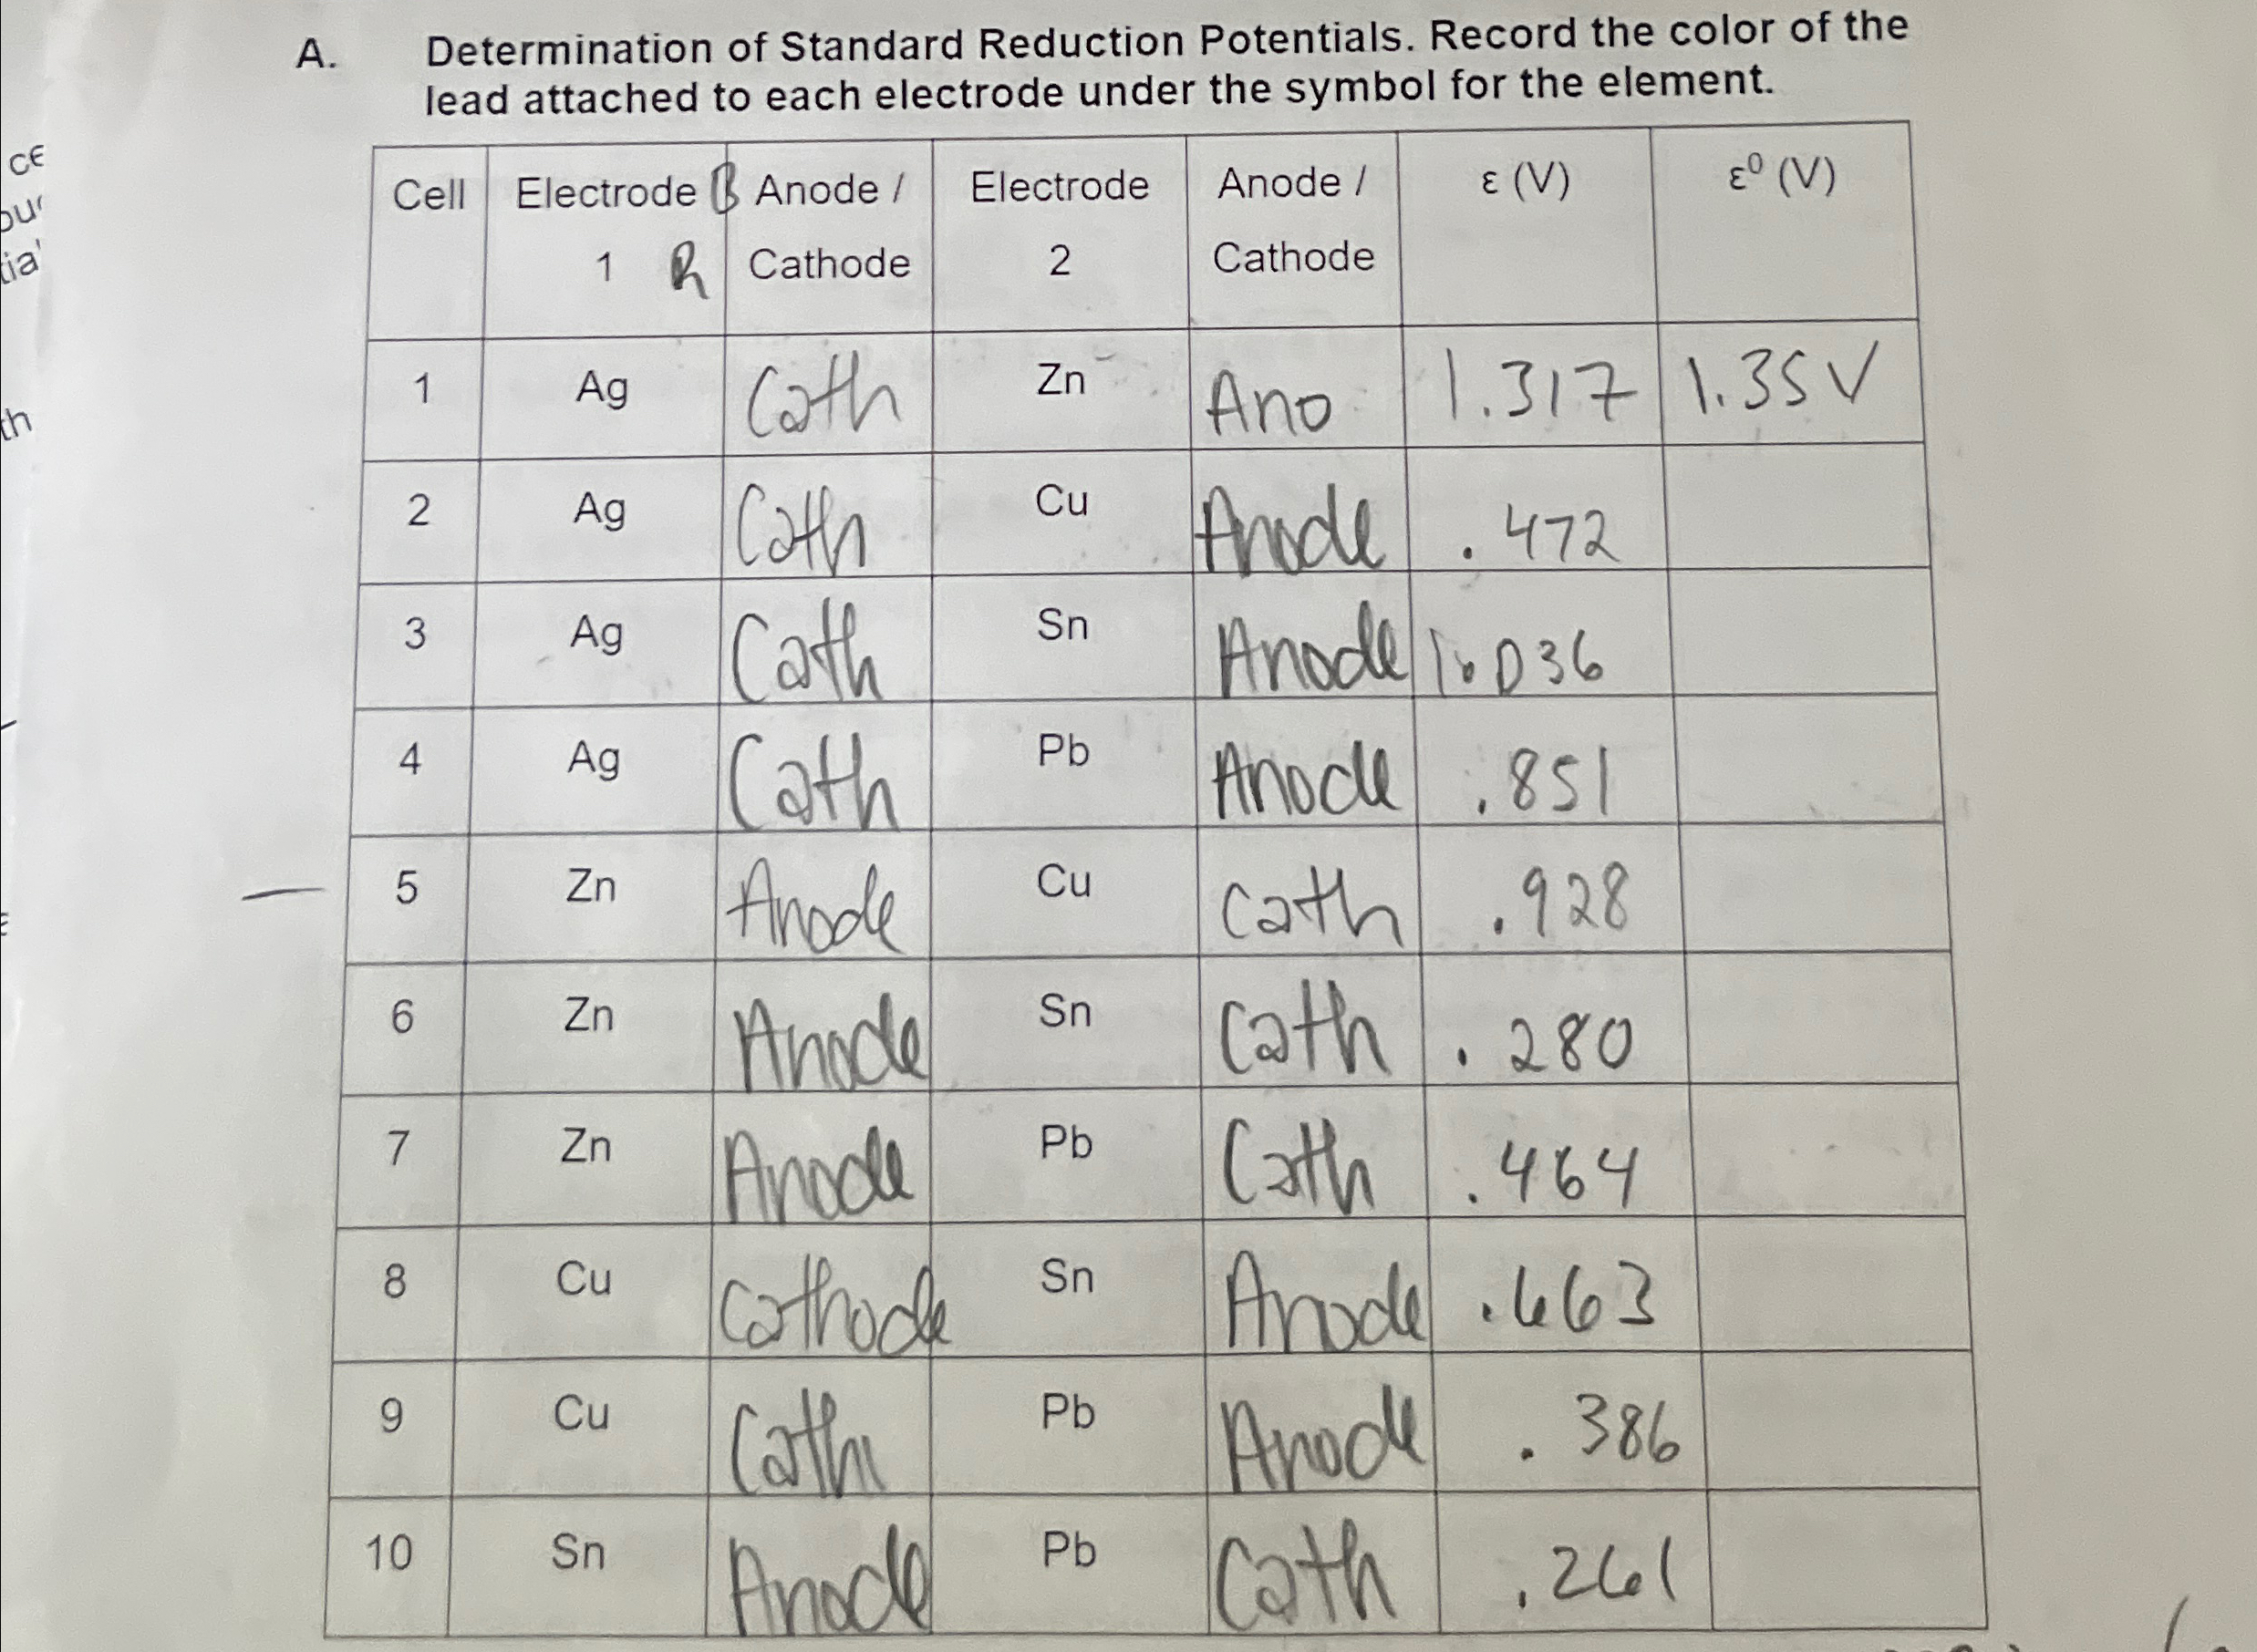 A. Determination of Standard Reduction Potentials. Record the color of the
lead attached to each electrode under the symbol for the element.
Cell Electrode 1 B R Anode / Cathode Electrode 2 Anode / Cathode ε (V) ε⁰ (V)
1 Ag Cath Zn Ano 1.317 1.35 V
2 Ag Cath Cu Anode .472
3 Ag Cath Sn Anode 1.036
4 Ag Cath Pb Anode .851
5 Zn Anode Cu Cath .928
6 Zn Anode Sn Cath .280
7 Zn Anode Pb Cath .464
8 Cu Cathode Sn Anode .663
9 Cu Cath Pb Anode .386
10 Sn Anode Pb Cath .261